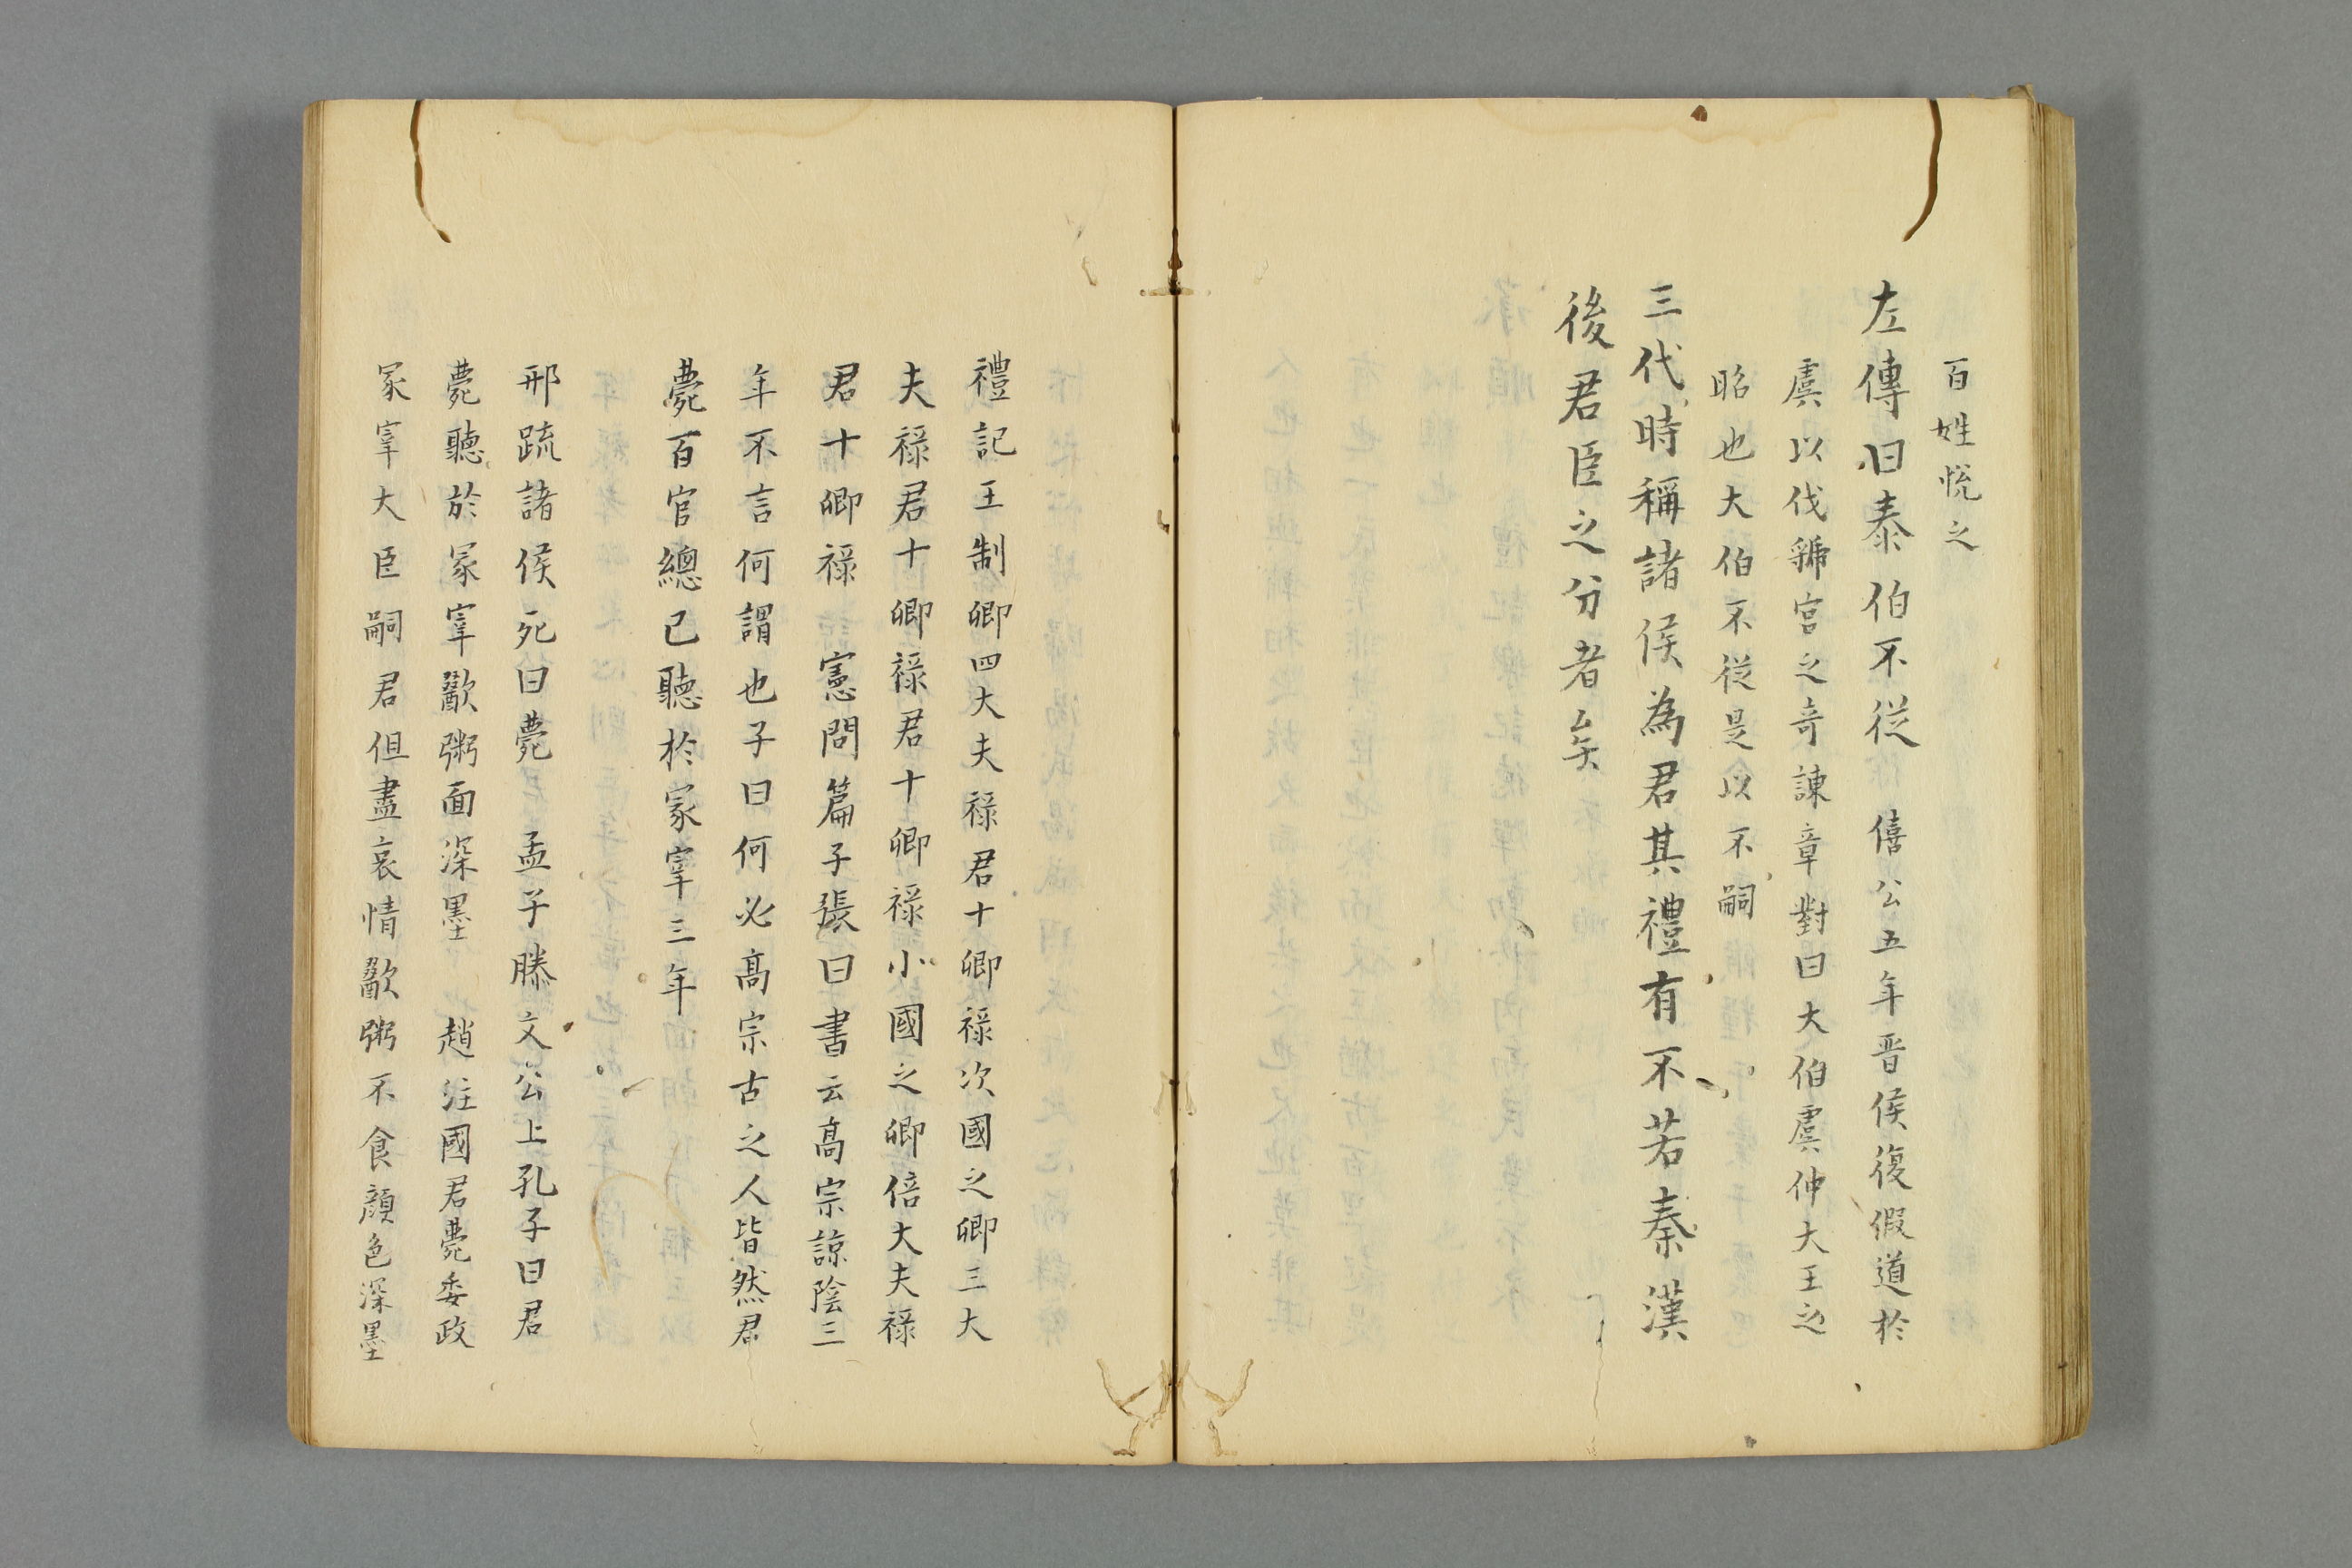 百姓悦之
左傳曰泰伯不從　僖公五年晋侯復假道於
虞以伐虢宮之奇諫章對曰大伯虞仲大王之
昭也大伯不從是以不嗣
三代時稱諸侯為君其禮有不若秦漢
後君臣之分者矣
禮記王制卿四大夫禄君十卿禄次國之卿三大
夫禄君十卿禄君十卿禄小國之卿倍大夫禄
君十卿禄　憲問篇子張曰書云高宗諒陰三
年不言何謂也子曰何必高宗古之人皆然君
薨百官總己聽於冢宰三年
邢疏諸侯死曰薨　孟子滕文公上孔子曰君
薨聽於冢宰歠粥面深墨　趙注國君薨委政
冢宰大臣嗣君但盡哀情歠粥不食顔色深墨